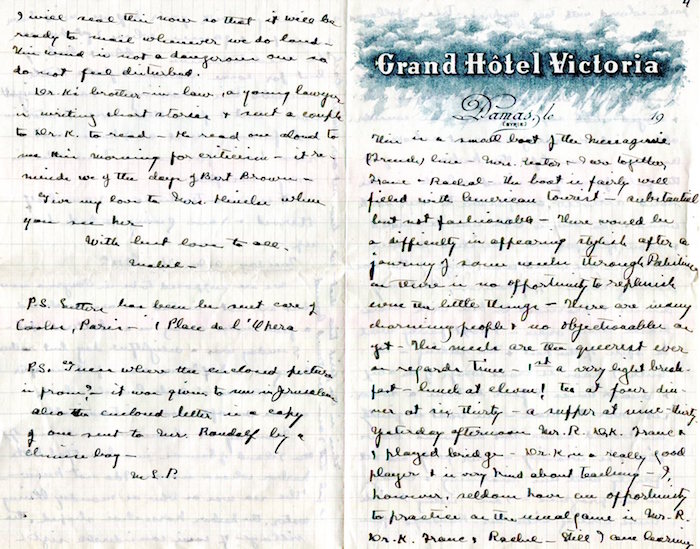 I will seal this now so that it will be
ready to mail whenever we do land –
This wind is not a dangerous one so
do not feel disturbed.
Dr. K's brother-in-law, a young lawyer
is writing short stories & sent a couple
to Dr. K. to read – He read one aloud to
me this morning for criticism – it re-
minds me of the days of Bert Brown –
Give my love to Mrs. when
you see her –
With best love to all –
Mabel –
P.S. Letters has been be sent care of
Cooks, Paris – 1 Place de l'Opera
P.S. Guess where the enclosed picture
is from? – it was given to me in Jerusalem
also the enclosed letter is a copy
of one sent to Mr. Randolf by a
chinese boy –
M.S.P.
4
Grand Hôtel Victoria
Damas, le 19
(SYRIE)
This is a small boat of the Messagerie
(French) line – Mrs. & I are together,
& Rachel – The boat is fairly well
filled with American tourist – substantial
but not fashionable – There would be
a difficulty in appearing stylish after a
journey of some weeks through Palestine
as there is no opportunity to replenish
even the little things – There are many
charming people & no objectionable as
yet – The meals are the queerest ever
as regards time – 1st a very light break-
fast – lunch at eleven! tea at four din-
ner at six thirty – a supper at nine-thirty
Yesterday afternoon Mr. R. Dr. K. &
I played bridge – Dr. K. is a really good
player & is very kind about teaching – I,
however, seldom have an opportunity
to practice as the usual game is Mr. R.
Dr. K. & Rachel – Still I am learning